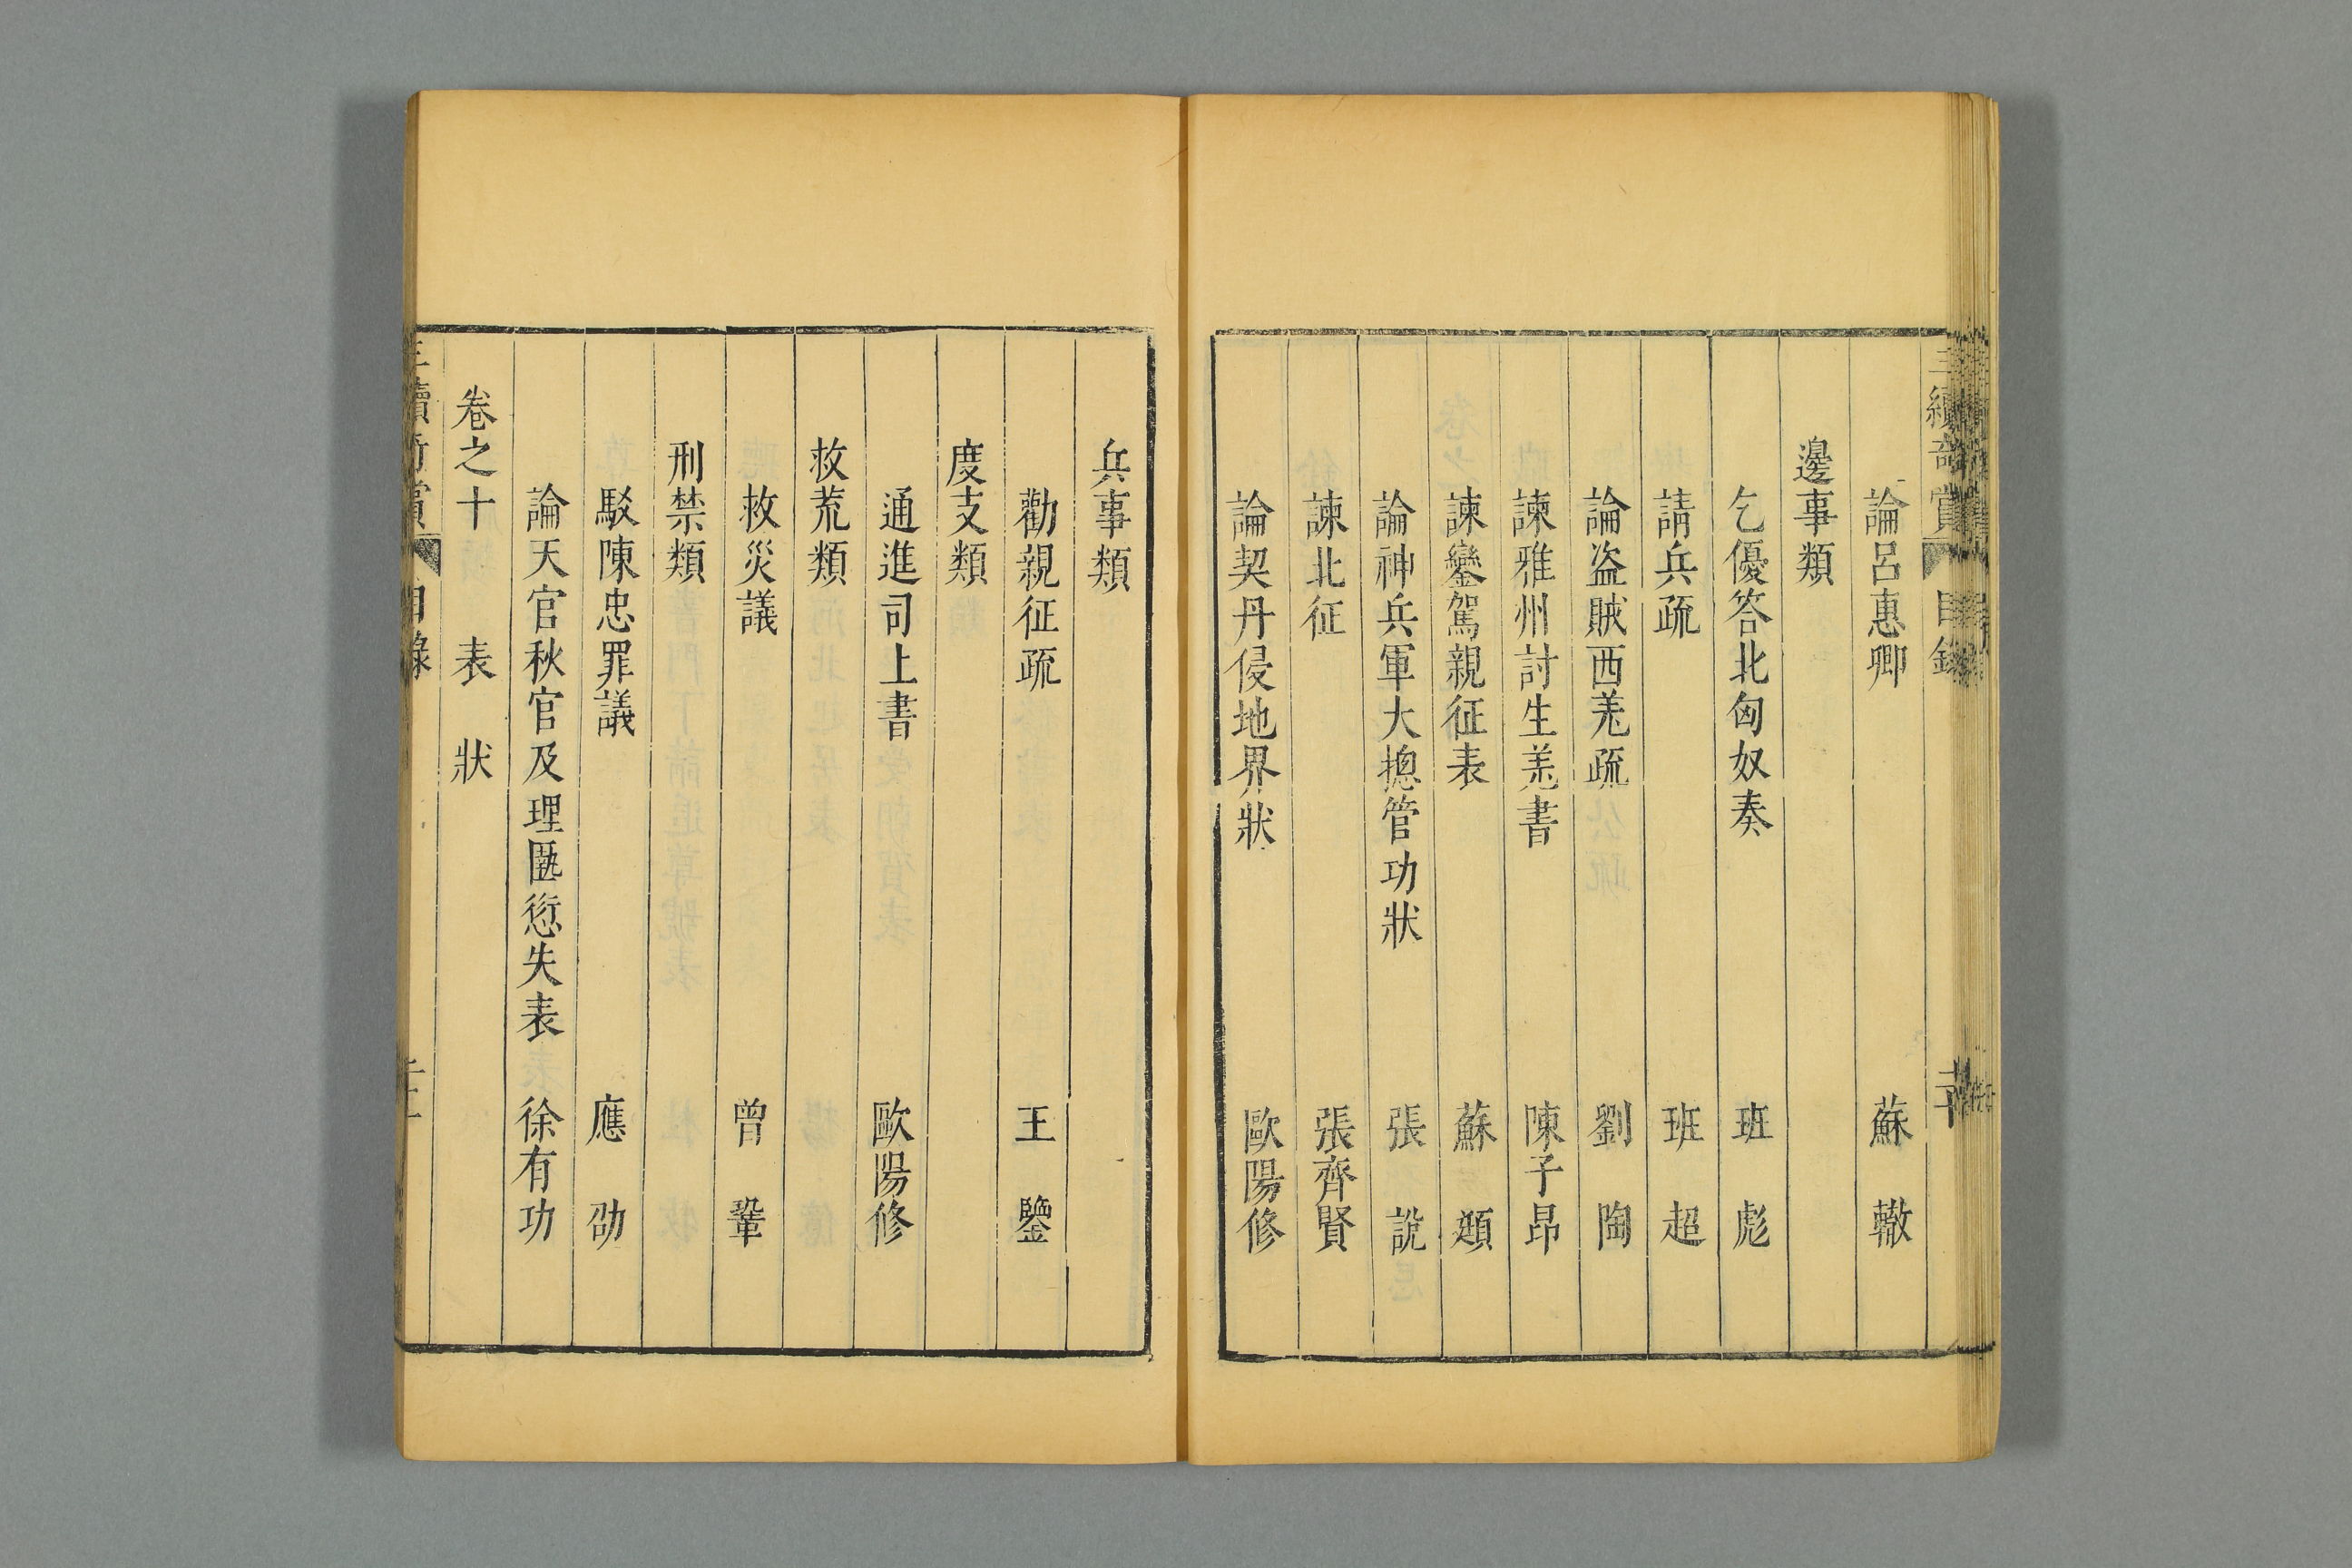 論呂惠卿 蘇轍
邊事類
乞優答北匈奴奏 班彪
請兵疏 班超
論盜賊西羌疏 劉陶
諫雅州討生羌書 陳子昂
諫鑾駕親征表 蘇頲
論神兵軍大摠管功狀 張說
諫北征 張齊賢
論契丹侵地界狀 歐陽修
兵事類
勸親征疏 王鑒
度支類
通進司上書 歐陽修
救荒類
救災議 曾鞏
刑禁類
駁陳忠罪議 應劭
論天官秋官及理匭愆失表 徐有功
卷之十 表 狀